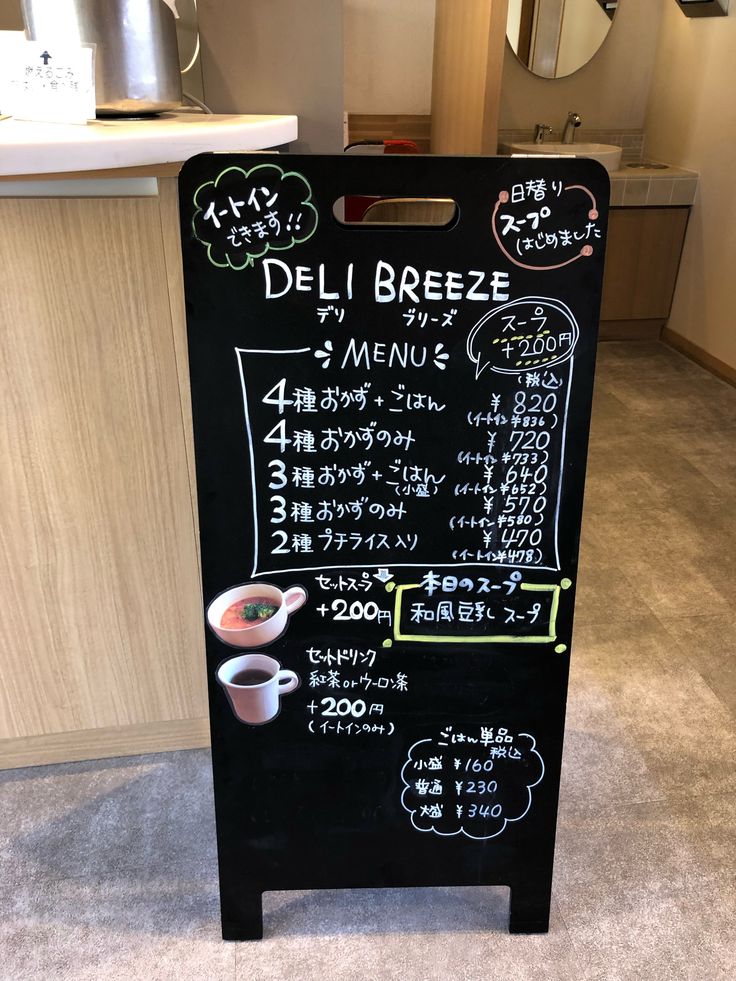 燃えるゴミ
イートイン
できます!!
日替り
スープ
はじめました
DELI BREEZE
デリ ブリーズ
スープ
+200円
MENU
(税込)
4種おかず+ごはん ¥820
(イートイン¥836)
4種おかずのみ ¥720
(イートイン¥733)
3種おかず+ごはん ¥640
(小盛) (イートイン¥652)
3種おかずのみ ¥570
(イートイン¥580)
2種 プチライス入り ¥470
(イートイン¥478)
セットスープ
+200円
本日のスープ
和風豆乳スープ
セットドリンク
紅茶orウーロン茶
+200円
(イートインのみ)
ごはん単品
税込
小盛 ¥160
普通 ¥230
大盛 ¥340